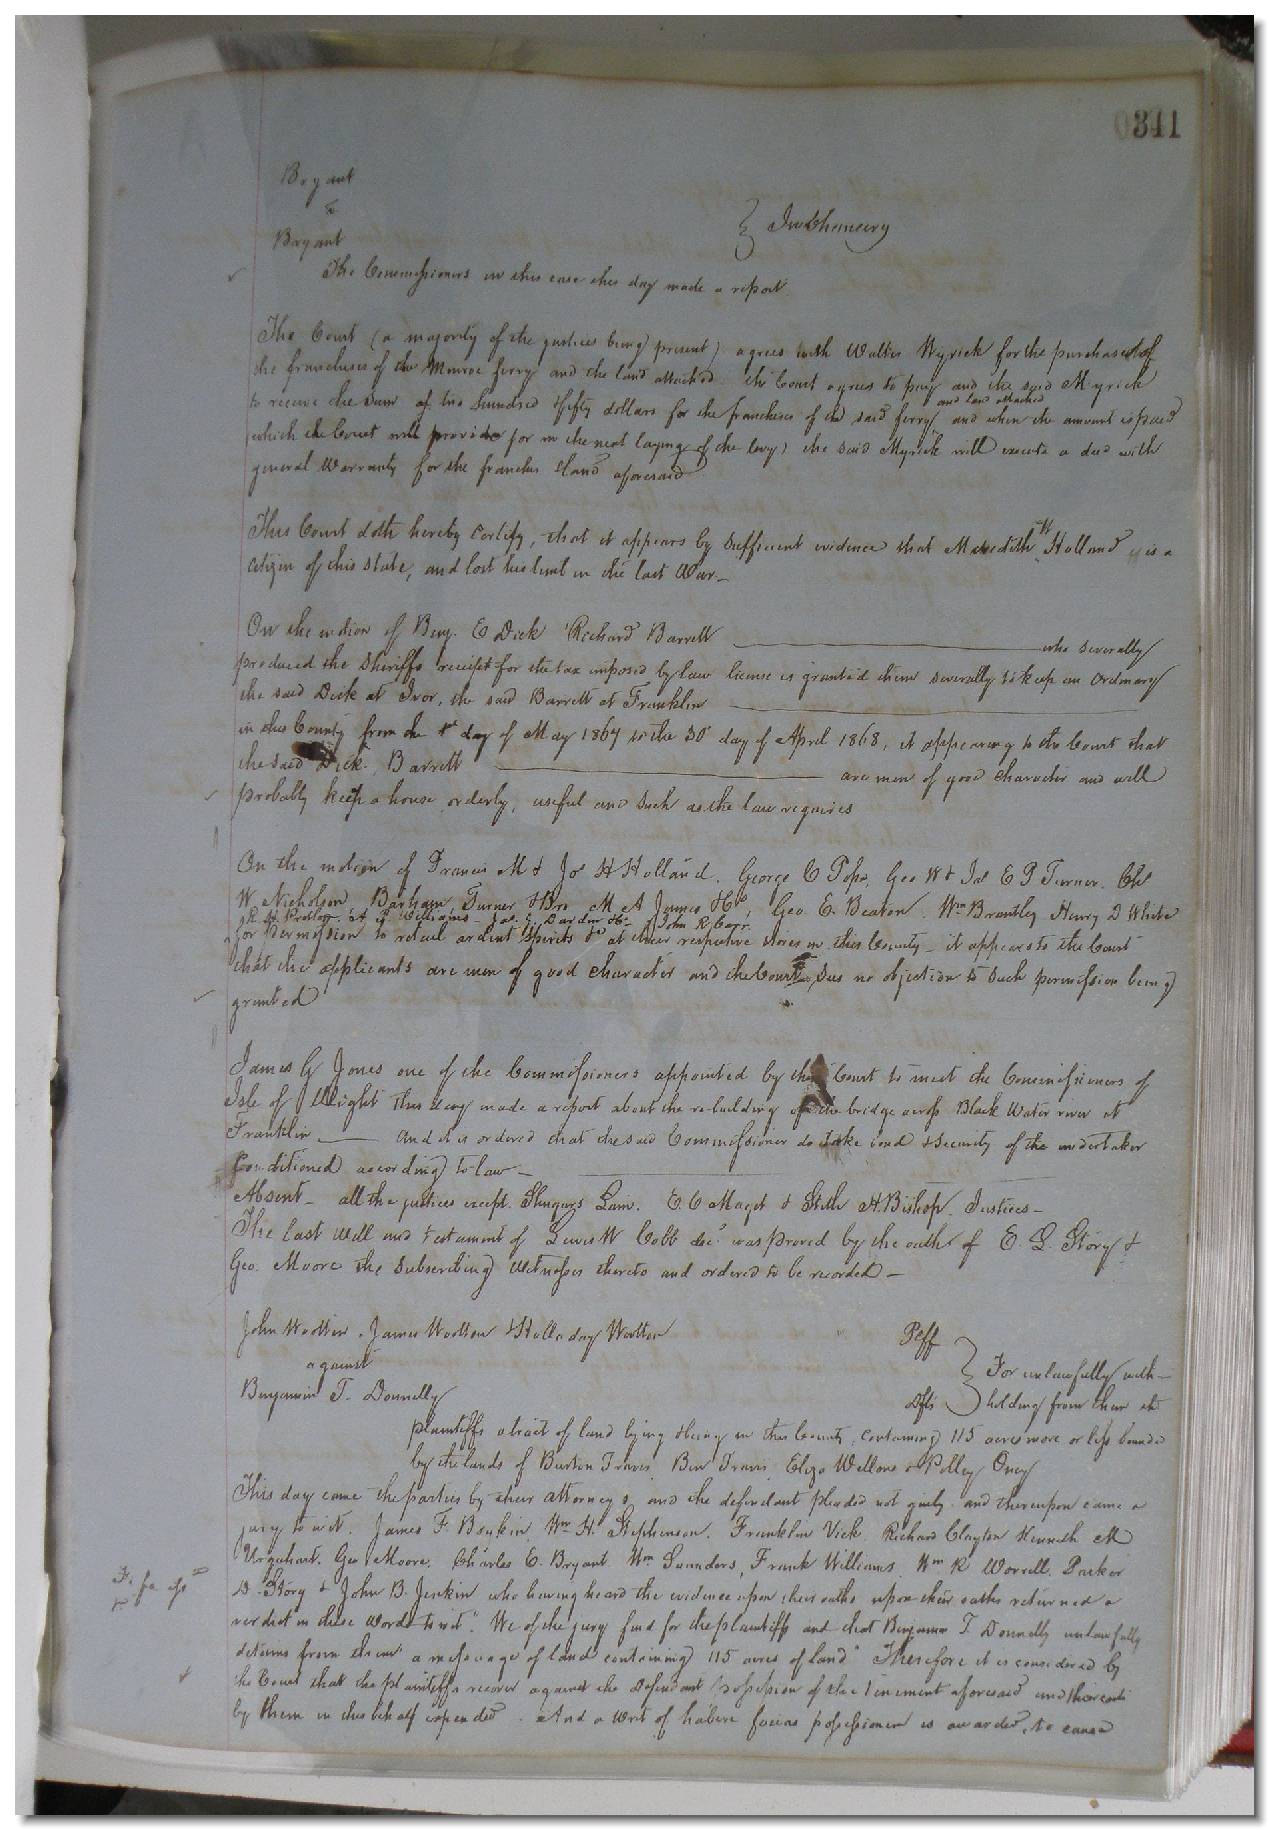 0341
Bryant
&
Bryant
} In Chancery
The Commissioners in this case this day made a report
The Court (a majority of the justices being present) agrees with Walter Myrick for the purchase of
the franchises of the Monroe ferry and the land attached the Court agrees to pay and the said Myrick
to receive the sum of two hundred & fifty dollars for the franchises of the said ferry and land attached and when the amount is paid
(which the Court will provide for in the next laying of the levy) the said Myrick will execute a deed with
general Warranty for the franchise & land aforesaid
This Court doth hereby certify, that it appears by sufficient evidence that Meredith H Holland is a
citizen of this state, and lost his limb in the last War—
On the motion of Benj. E Dick Richard Barrett who severally
produced the Sheriffs receipt for the tax imposed by law license is granted them severally to keep an ordinary
the said Dick at Ivor, the said Barrett at Franklin
in this County from the 1st day of May 1867 to the 30 day of April 1868, it appearing to the Court that
the said Dick, Barrett are men of good character and will
probably keep a house orderly, useful and such as the law requires
On the motion of Francis M & Jos H Holland, George C Pope, Geo W & Jas E P Turner, Ch
W. Nicholson, Barham Turner & Bro M A Joyner & Co, Geo. E. Beaton, Wm Brantley Henry D White
R. H. A. F Williams Jas. G. Darden & Co John R Carr
for permission to retail ardent spirits &c at their respective stores in this County— it appears to the Court
that the applicants are men of good character and the Court sees no objection to such permission being
granted
James G Jones one of the Commissioners appointed by this Court to meet the Commissioners of
Isle of Wight this day made a report about the re-building of the bridge across Black Water river at
Franklin — And it is ordered that the said Commissioner do take bond & security of the undertaker
Conditioned according to law—
Absent— all the justices except Shugars Lain, E. C Maget & Stith H. Bishop Justices—
The last will and testament of Lewis W Cobb decd was proved by the oaths of E. L. Story &
Geo. Moore the subscribing witnesses thereto and ordered to be recorded—
John Wootten, James Wootten & Holladay Wootten Plff
against
Benjamin T. Donnelly Dfts
} For unlawfully with-
holding from them the
plaintiffs a tract of land lying & being in this County, containing 115 acres more or less bounded
by the lands of Burton Travis, Ben Travis, Eliza Wellons & Polley Oney
This day came the parties by their attorneys, and the defendant pleaded not guilty, and thereupon came a
jury to wit, James F. Boykin, Wm H. Stephenson, Franklin Vick, Richard Clayton Kenneth M
Urquhart, Geo Moore, Charles E. Bryant, Wm Saunders, Frank Williams, Wm R Worrell, Parker
D. Story & John B. Jenkin who having heard the evidence upon their oaths upon their oaths returned a
verdict in these words to wit "We of the jury find for the plaintiffs and that Benjamin T Donnelly unlawfully
detains from them a messuage of land containing 115 acres of land" Therefore it is considered by
the Court that the plaintiffs recover against the Defendant possession of the tenement aforesaid and their costs
by them in this behalf expended. And a writ of habere facias possessionem is awarded, to cause